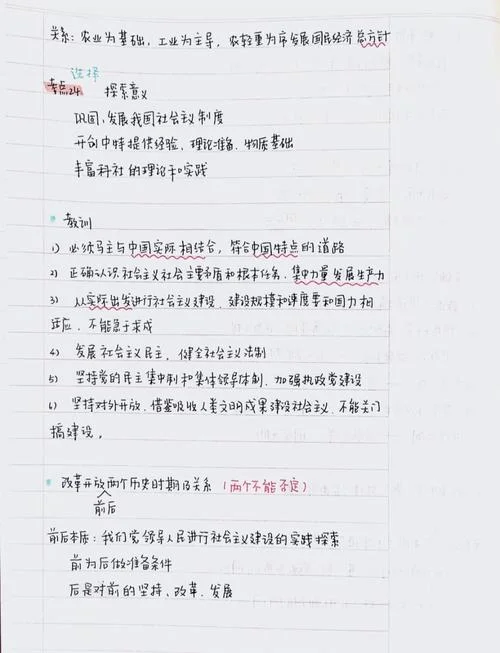 关系：农业为基础，工业为主导，农轻重为序发展国民经济总方针
选择
考点24 探索意义
巩固、发展我国社会主义制度
开创中特提供经验、理论准备、物质基础
丰富科社的理论和实践
教训
1）必须马主与中国实际相结合，符合中国特点的道路
2）正确认识社会主义社会主要矛盾和根本任务，集中力量发展生产力
3）从实际出发进行社会主义建设，建设规模和速度要和国力相
适应，不能急于求成
4）发展社会主义民主，健全社会主义法制
5）坚持党的民主集中制和集体领导体制，加强执政党建设
6）坚持对外开放，借鉴吸收人类文明成果建设社会主义，不能关门
搞建设。
改革开放两个历史时期及关系（两个不能否定）
前后
前后本质：我们党领导人民进行社会主义建设的实践探索
前为后做准备条件
后是对前的坚持、改革、发展